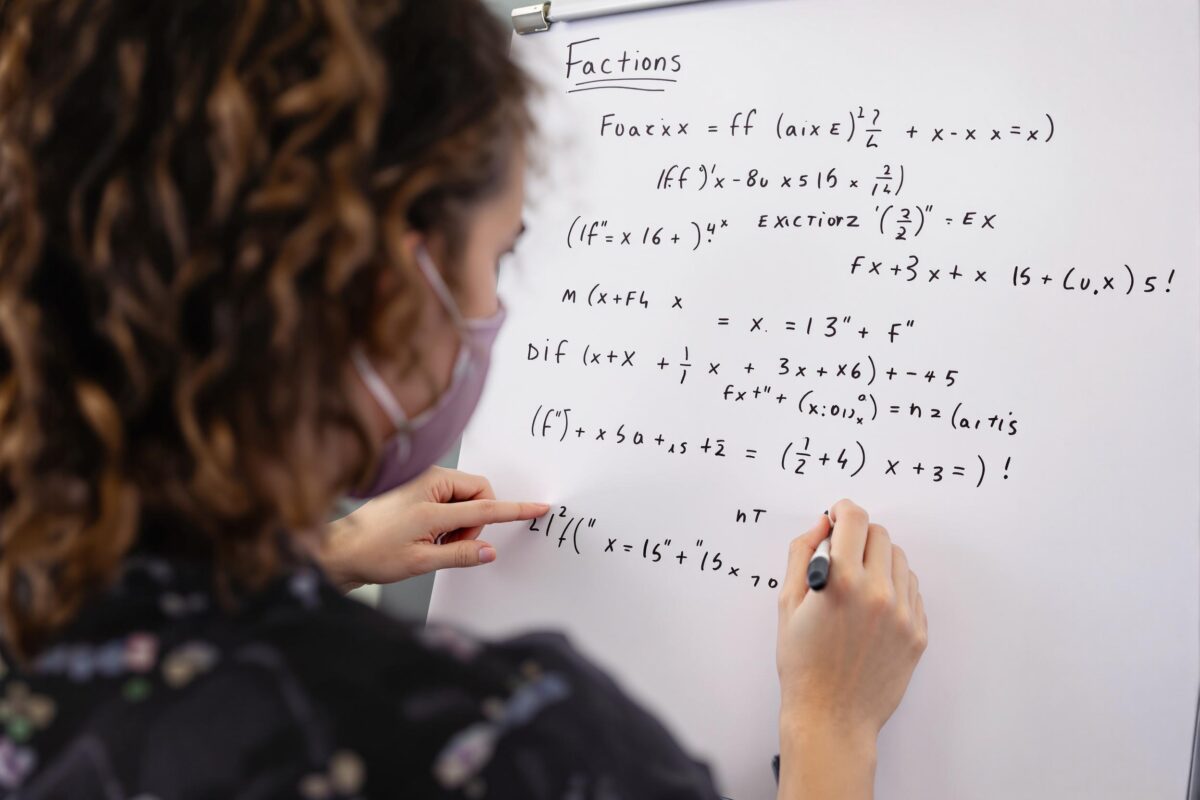 Factions
Fuacixx = ff (aixE)² 2/2 + x - x x = x)
(ff)'x - 8u x 5 16 x 2/14)
(1f" = x 16 + )!4ˣ Exictiorz '(2/2)" = EX
fx + 3x + x 15 + (u.x) 5!
M (x+F4 x
= x. = 13" + f"
Dif (x+x + 1/1 x + 3x + x6) + - 45
fx +" + (x:01)ₓᵃ) = n2 (artis
(f"] + x5a + 15 + 2 = (1/2 + 4) x + 3 = ) !
nT
21²f(" x = 15" + "15 x 70